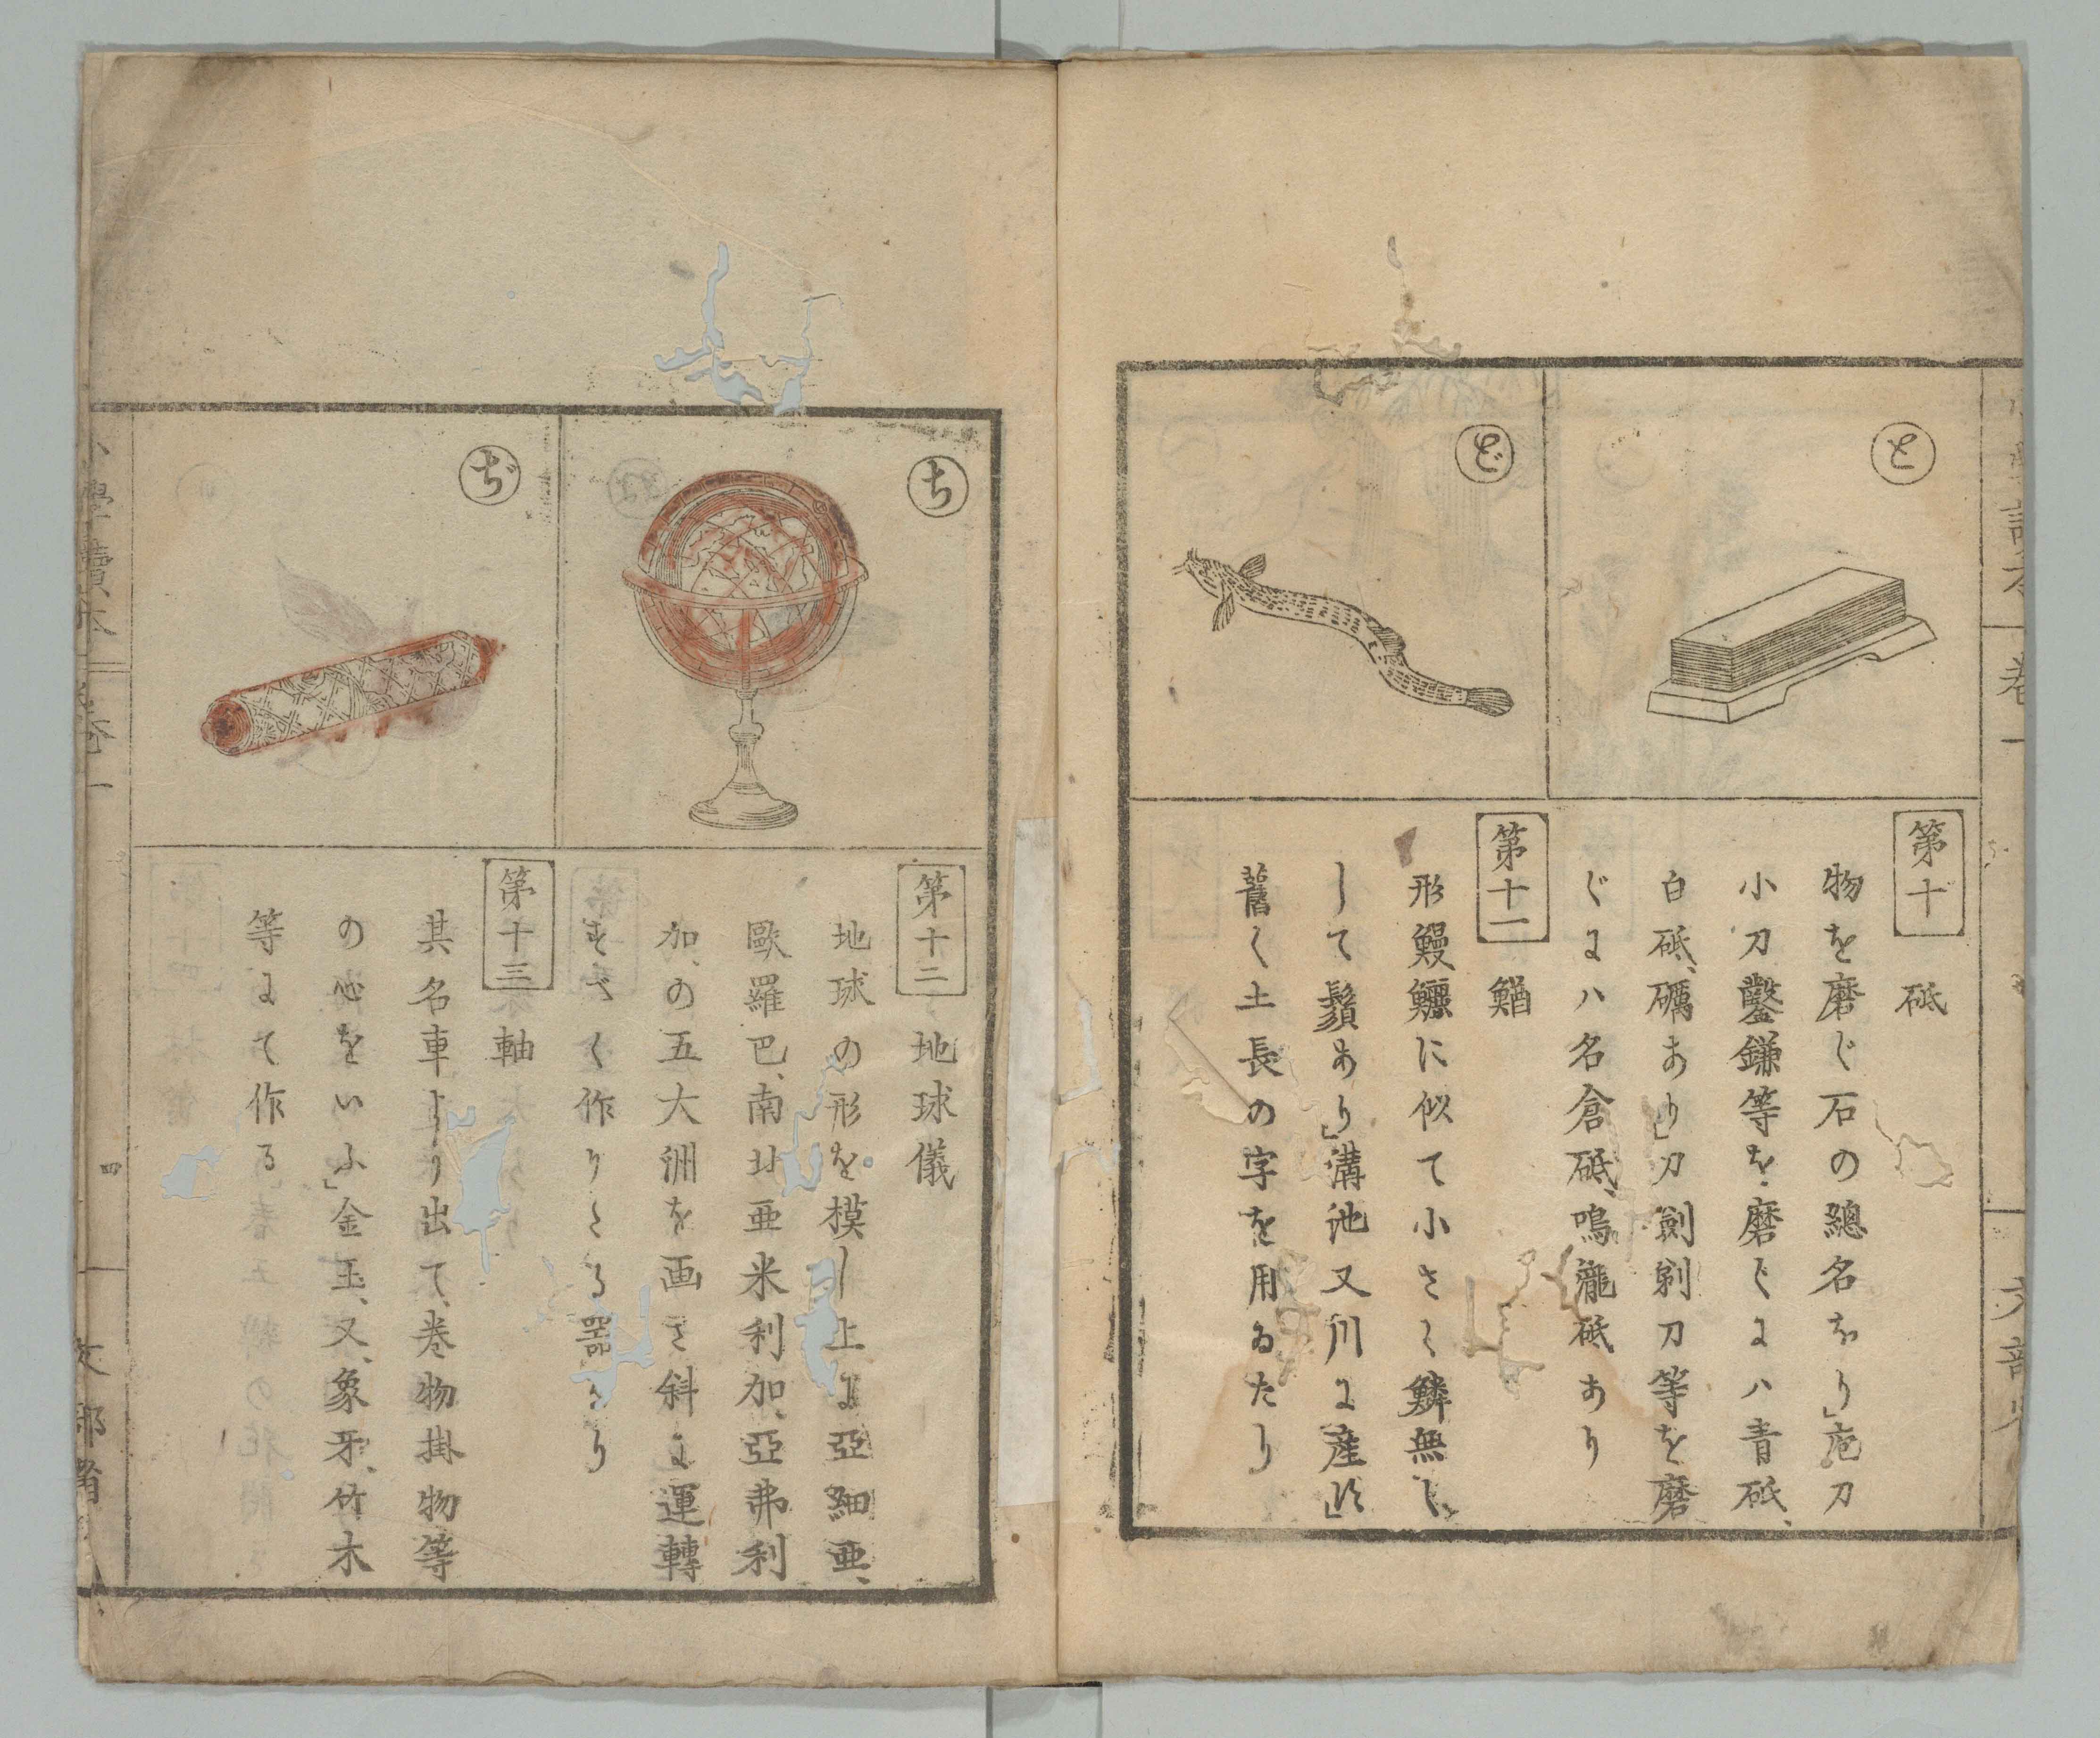 と
ど
第十
砥
物を磨ぐ石の總名なり」庖刀
小刀鑿鎌等を磨ぐにハ青砥、
白砥、礪あり」刀劍剃刀等を磨
ぐにハ名倉砥、鳴瀧砥あり
第十一
鰌
形鰻鱺に似て小さく鱗無く
して鬚あり」溝池又川に産す」
舊く土長の字を用ゐたり
ち
ぢ
第十二
地球儀
地球の形を模し上に亞細亜、
歐羅巴、南北亜米利加、亞弗利
加、の五大洲を画き斜に運轉
すべく作りたる器なり
第十三
軸
其名車より出て、巻物掛物等
の心をいふ」金玉、又、象牙、竹木
等にて作る
小學讀本
巻一
四
文部省